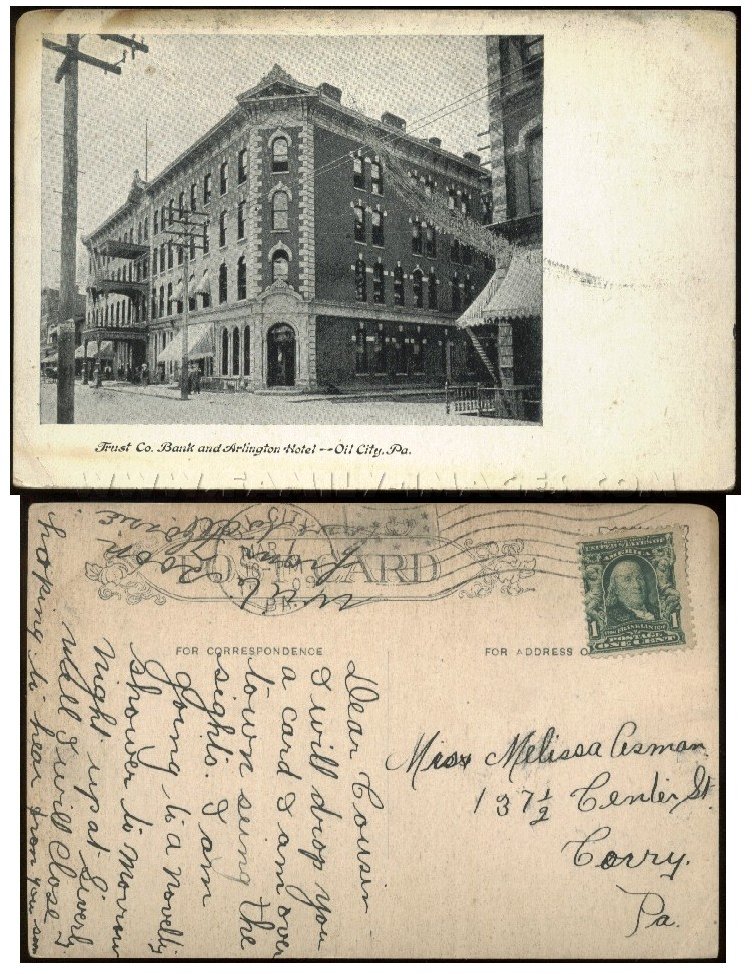 Trust Co. Bank and Arlington Hotel -- Oil City, Pa.
POST CARD
FOR CORRESPONDENCE
FOR ADDRESS O
UNITED STATES OF
AMERICA
1
FRANKLIN
POSTAGE
ONE CENT
Miss Melissa Cisman
137 1/2 Center St.
Corry.
Pa.
Dear Cousin
I will drop you
a card I am over
town seing the
sights. I am
going to a novelty
shower to morrow
night up at Siverly
well I will close
hoping to hear from you
soon